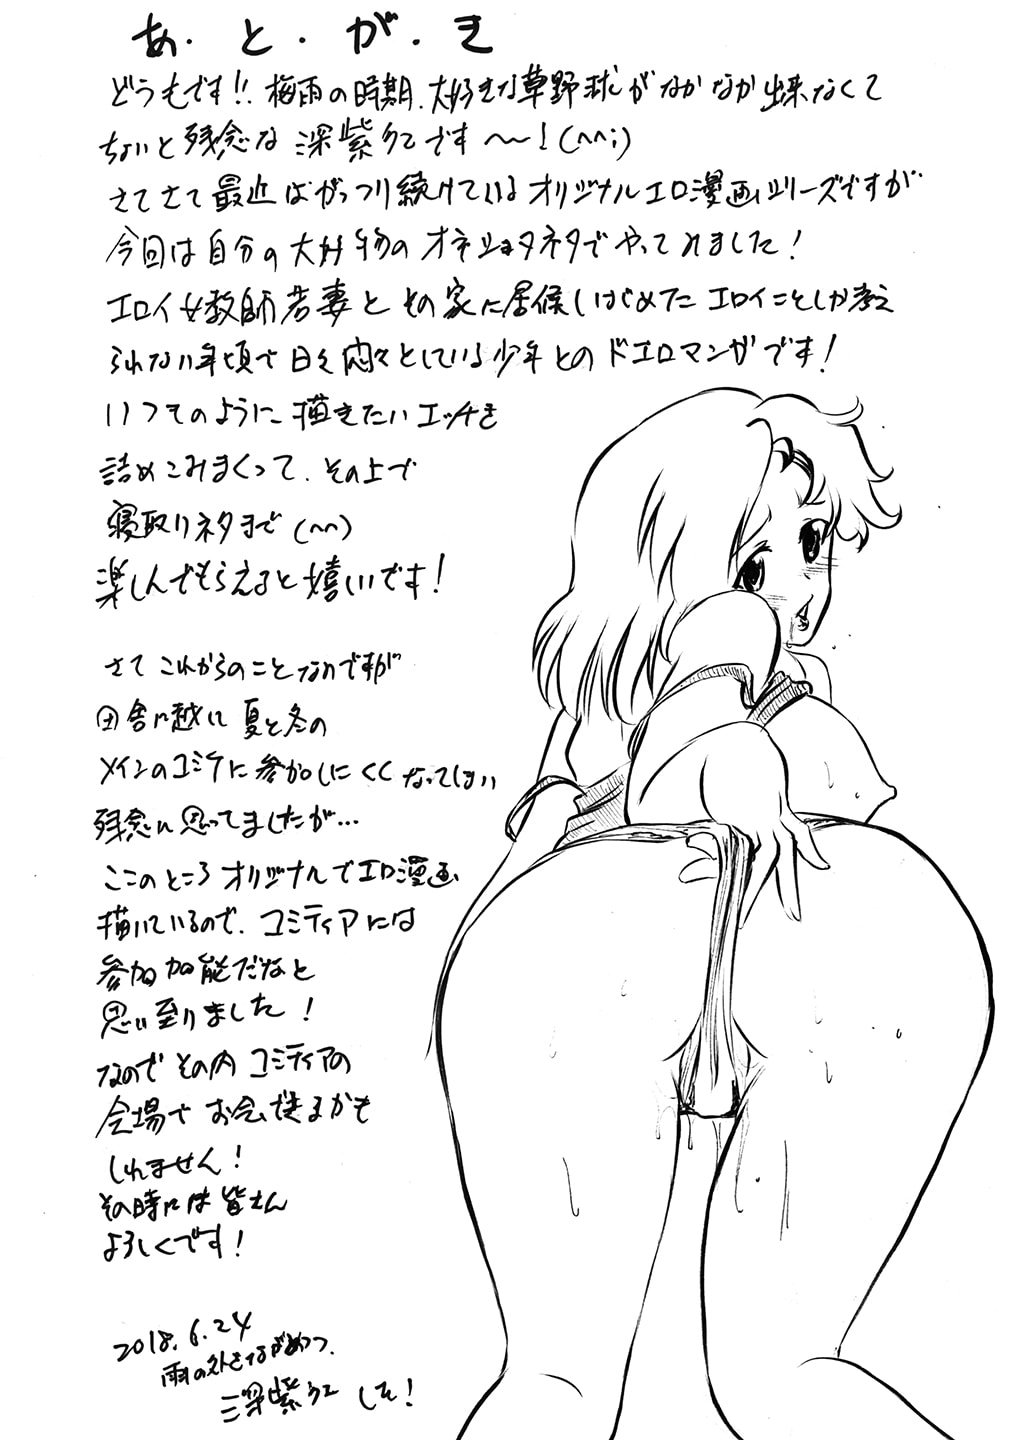 あ・と・が・き
どうもです!! 梅雨の時期、大好きな草野球がなかなか出来なくて
ちょいと残念な 深紫紅です〜〜!(^^;)
さてさて最近はがっつり続けているオリジナルエロ漫画シリーズですが
今回は自分の大好物のオネショタネタでやってみました!
エロイ女教師若妻とその家に居候しはじめたエロイことしか考え
られない年頃で日々悶々としている少年とのドエロマンガです!
いつものように描きたいエッチを
詰めこみまくって、その上で
寝取りネタまで(^^)
楽しんでもらえると嬉しいです!
さてこれからのことなのですが
田舎に越して夏と冬の
メインのコミケに参加しにくくなってしまい
残念に思ってましたが…
ここのところオリジナルでエロ漫画
描いているので、コミティアには
参加可能だなと
思い至りました!
なのでその内コミティアの
会場でお会いできるかも
しれません!
その時には皆さん
よろしくです!
2018.6.24
雨の外をながめつつ、
深紫紅